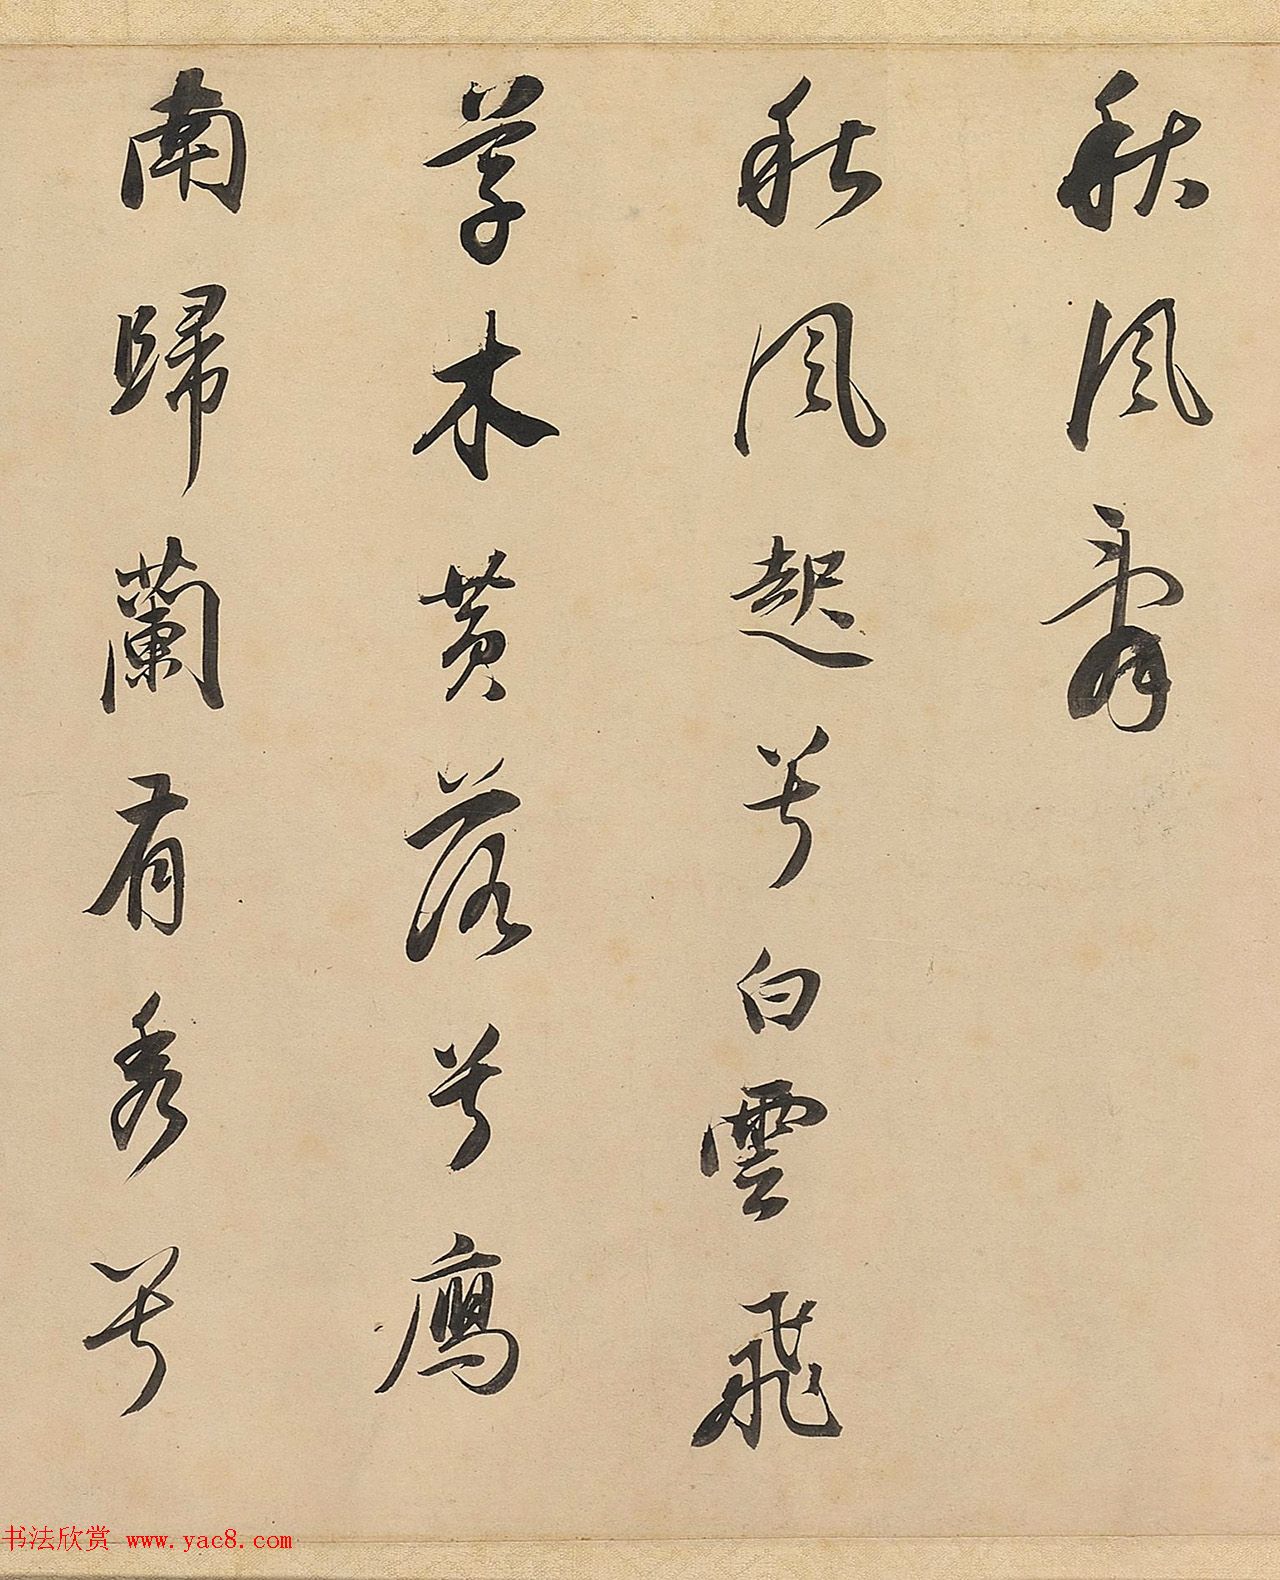 秋風辭
秋風起兮白雲飛
草木黃落兮鴈
南歸蘭有秀兮
书法欣赏 www.yac8.com